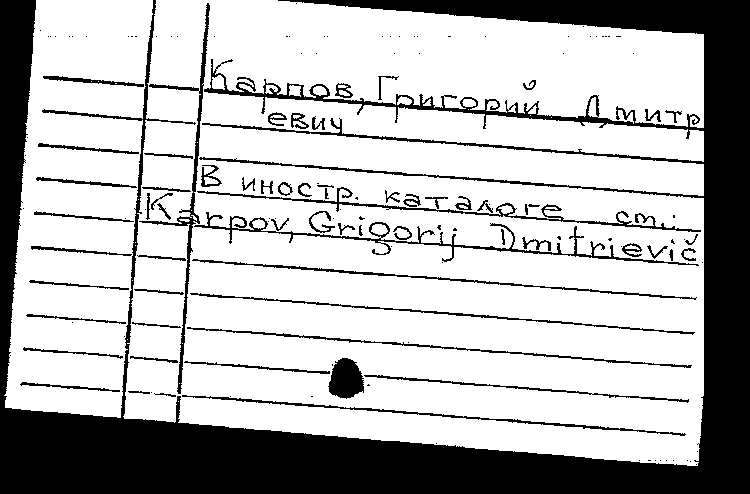 Карпов, Григорий Дмитр
евич
В иностр. каталоге см.:
Karpov, Grigorij Dmitrievič